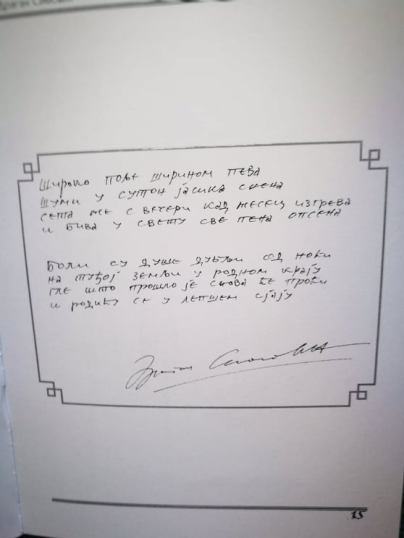 широко поље ширином пева
шуми у сутон јасика снена
сета ме с вечери кад месец изгрева
и бива у свету све пена опсена
боли су душе дубљи од ноћи
на туђој земљи у родном крају
гле што прошло је снова ће проћи
и родићу се у лепшем сјају
15